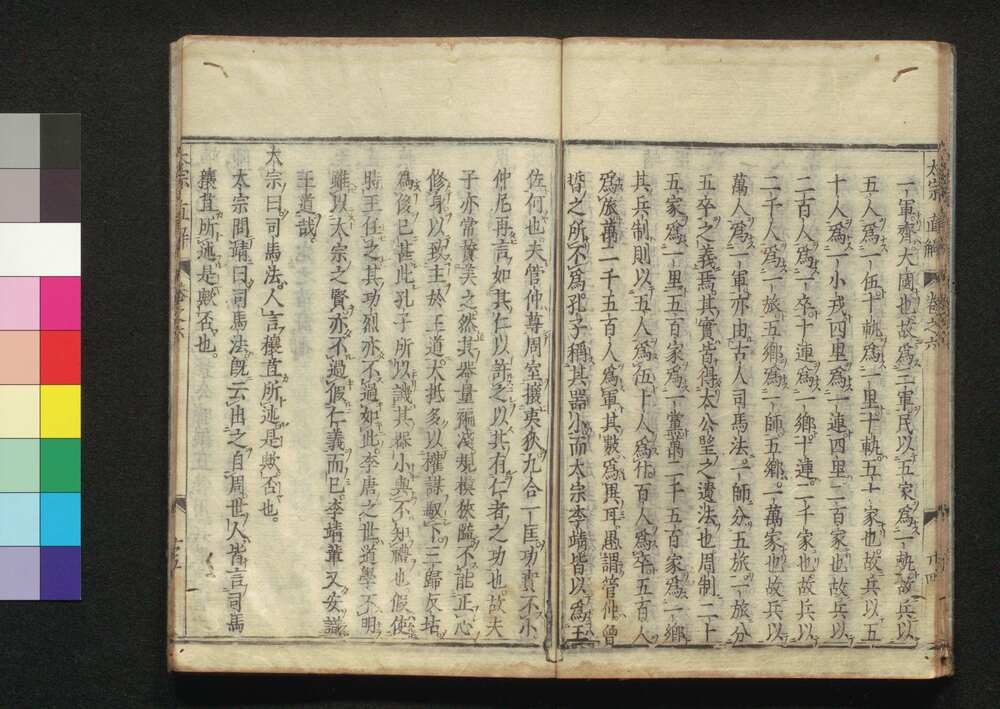 太宗直解 卷之六 十四
一軍齊大國也故為三軍民以五家為一軌故兵以
五人為一伍十軌為一里十軌五十家也故兵以五
十人為一小戎四里為一連四里二百家也故兵以
二百人為一卒十連為一鄉十連二千家也故兵以
二千人為一旅五鄉為一師五鄉一萬家也故兵以
萬人為一軍亦由古人司馬法一師分五旅一旅分
五卒之義焉其實皆得太公望之遺法也周制二十
五家為一里五百家為一黨萬二千五百家為一鄉
其兵制則以五人為伍十人為什百人為卒五百人
為旅萬二千五百人為軍其數為異耳愚謂管仲曾
皆之所不為孔子稱其器小而太宗李靖皆以為王
佐何也夫管仲尊周室攘夷狄九合一匡功責不小
仲尼再言如其仁以許之以其有仁者之功也故夫
子亦常賛美之然其器量褊淺規模狹隘不能正心
修身以致主於王道大抵多以權謀馭下三歸反坫
為後已甚此孔子所以譏其器小與不知禮也假使
時王任之其功烈亦不過如此李唐之世道學不明
雖以太宗之賢亦不過假仁義而已李靖輩又安識
王道哉
太宗曰司馬法人言穰苴所述是歟否也
太宗問靖曰司馬法既云出之自周世人皆言司馬
穰苴所述是歟否也
太宗直解 卷之六 十五